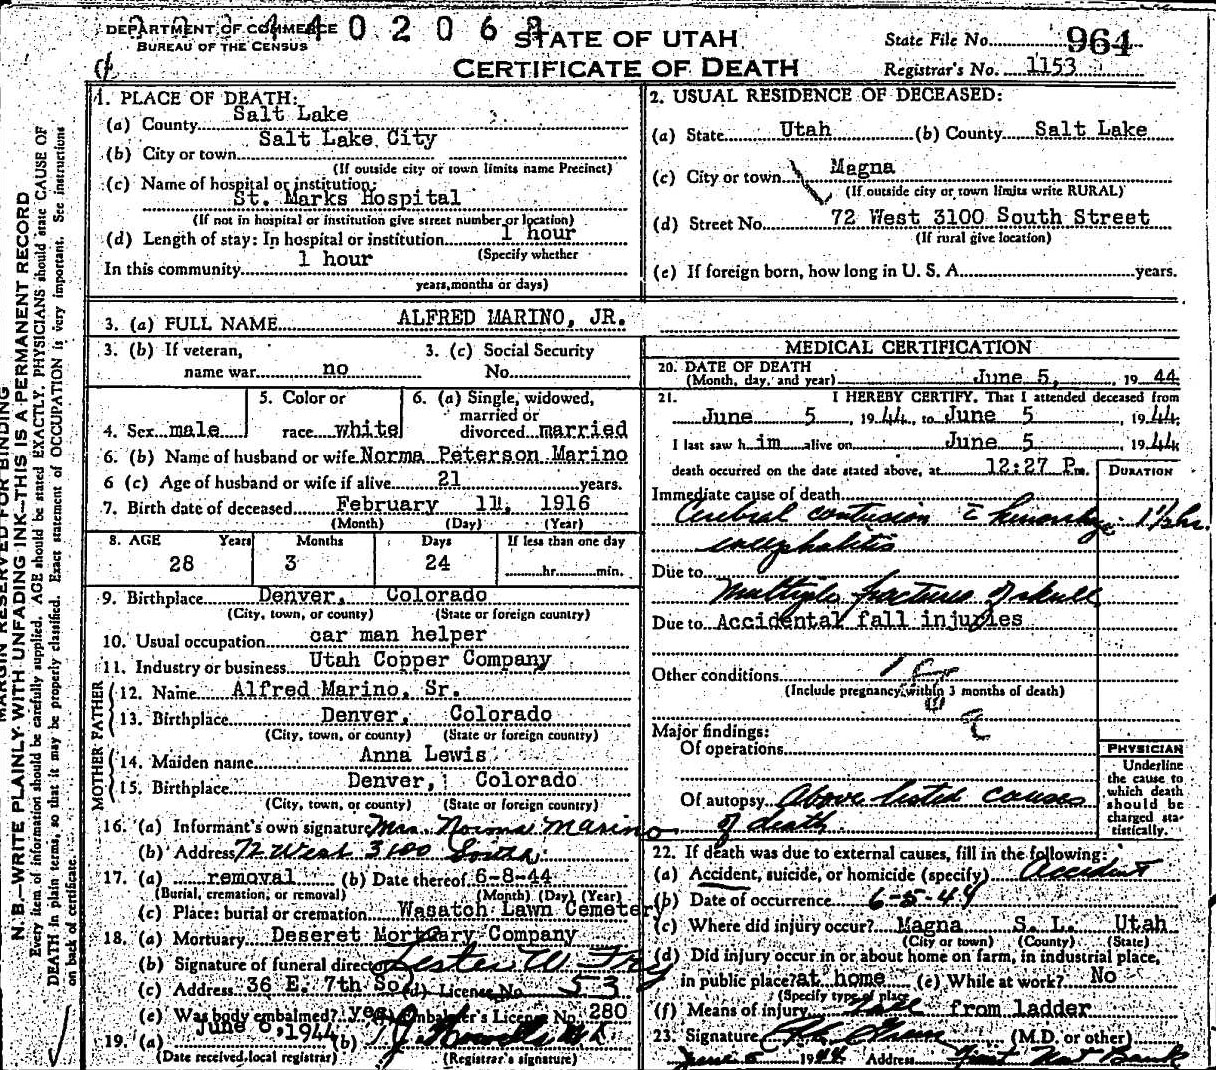 DEPARTMENT OF COMMERCE
BUREAU OF THE CENSUS
402068
STATE OF UTAH
CERTIFICATE OF DEATH
State File No. 964
Registrar's No. 1153
MARGIN RESERVED FOR BINDING
N. B.—WRITE PLAINLY WITH UNFADING INK—THIS IS A PERMANENT RECORD
Every item of information should be carefully supplied. AGE should be stated EXACTLY. PHYSICIANS should state CAUSE OF
DEATH in plain terms, so that it may be properly classified. Exact statement of OCCUPATION is very important. See instructions
on back of certificate.
1. PLACE OF DEATH:
(a) County Salt Lake
(b) City or town Salt Lake City
(If outside city or town limits name Precinct)
(c) Name of hospital or institution:
St. Marks Hospital
(If not in hospital or institution give street number or location)
(d) Length of stay: In hospital or institution 1 hour
(Specify whether
In this community 1 hour
years, months or days)
2. USUAL RESIDENCE OF DECEASED:
(a) State Utah (b) County Salt Lake
(c) City or town Magna
(If outside city or town limits write RURAL)
(d) Street No. 72 West 3100 South Street
(If rural give location)
(e) If foreign born, how long in U. S. A. years.
3. (a) FULL NAME ALFRED MARINO, JR.
3. (b) If veteran, name war no
3. (c) Social Security No.
4. Sex male
5. Color or race white
6. (a) Single, widowed, married or divorced married
6. (b) Name of husband or wife Norma Peterson Marino
6 (c) Age of husband or wife if alive 21 years.
7. Birth date of deceased February 11, 1916
(Month) (Day) (Year)
8. AGE Years Months Days If less than one day
28 3 24 hr. min.
9. Birthplace Denver, Colorado
(City, town, or county) (State or foreign country)
10. Usual occupation car man helper
11. Industry or business Utah Copper Company
FATHER
12. Name Alfred Marino, Sr.
13. Birthplace Denver, Colorado
(City, town, or county) (State or foreign country)
MOTHER
14. Maiden name Anna Lewis
15. Birthplace Denver, Colorado
(City, town, or county) (State or foreign country)
16. (a) Informant's own signature Mrs. Norma Marino
(b) Address 72 West 3100 South
17. (a) removal (b) Date thereof 6-8-44
(Burial, cremation, or removal) (Month) (Day) (Year)
(c) Place: burial or cremation Wasatch Lawn Cemetery
18. (a) Mortuary Deseret Mortuary Company
(b) Signature of funeral director Lester W Fry
(c) Address 36 E. 7th So. (d) License No. 53
(e) Was body embalmed? yes (f) Embalmer's License No. 280
19. (a) June 6, 1944 (b)
(Date received local registrar) (Registrar's signature)
MEDICAL CERTIFICATION
20. DATE OF DEATH
(Month, day, and year) June 5, 1944
21. I HEREBY CERTIFY, That I attended deceased from
June 5, 1944, to June 5, 1944
I last saw him alive on June 5, 1944
death occurred on the date stated above, at 12:27 P.m.
DURATION
Immediate cause of death
Cerebral contusion c̄ hemorrhage 1½ hr.
encephalitis
Due to
Multiple fractures of skull
Due to Accidental fall injuries
Other conditions
(Include pregnancy within 3 months of death)
Major findings:
Of operations
Of autopsy Above listed causes
of death.
PHYSICIAN
Underline
the cause to
which death
should be
charged sta-
tistically.
22. If death was due to external causes, fill in the following:
(a) Accident, suicide, or homicide (specify) Accident
(b) Date of occurrence 6-5-44
(c) Where did injury occur? Magna S. L. Utah
(City or town) (County) (State)
(d) Did injury occur in or about home on farm, in industrial place,
in public place? at home (e) While at work? No
(Specify type of place
(f) Means of injury Fall from ladder
23. Signature (M.D. or other)
June 5 1944 Address First Nat Bank